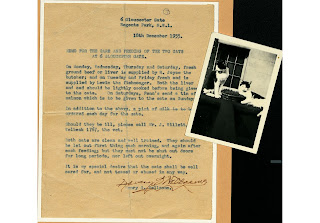 6 Gloucester Gate
Regents Park, N.W.1.
18th December 1955.
MEMO FOR THE CARE AND FEEDING OF THE TWO CATS
AT 6 GLOUCESTER GATE.
On Monday, Wednesday, Thursday and Saturday, fresh
ground beef or liver is supplied by R. Joyce the
butcher; and on Tuesday and Friday fresh cod is
supplied by Lewis the fishmonger. Both the liver
and cod should be lightly cooked before being given
to the cats. On Saturdays, Joyce's send a tin of
salmon which is to be given to the cats on Sunday
In addition to the above, a pint of milk is to be
ordered each day for the cats.
Should they be ill, please call Dr. J. Hillett,
Welbeck 1767, the vet.
Both cats are clean and well trained. They should
be let out first thing each morning, and again after
each feeding; but they must not be shut out doors
for long periods, nor left out overnight.
It is my special desire that the cats shall be well
cared for, and not teased or abused in any way.